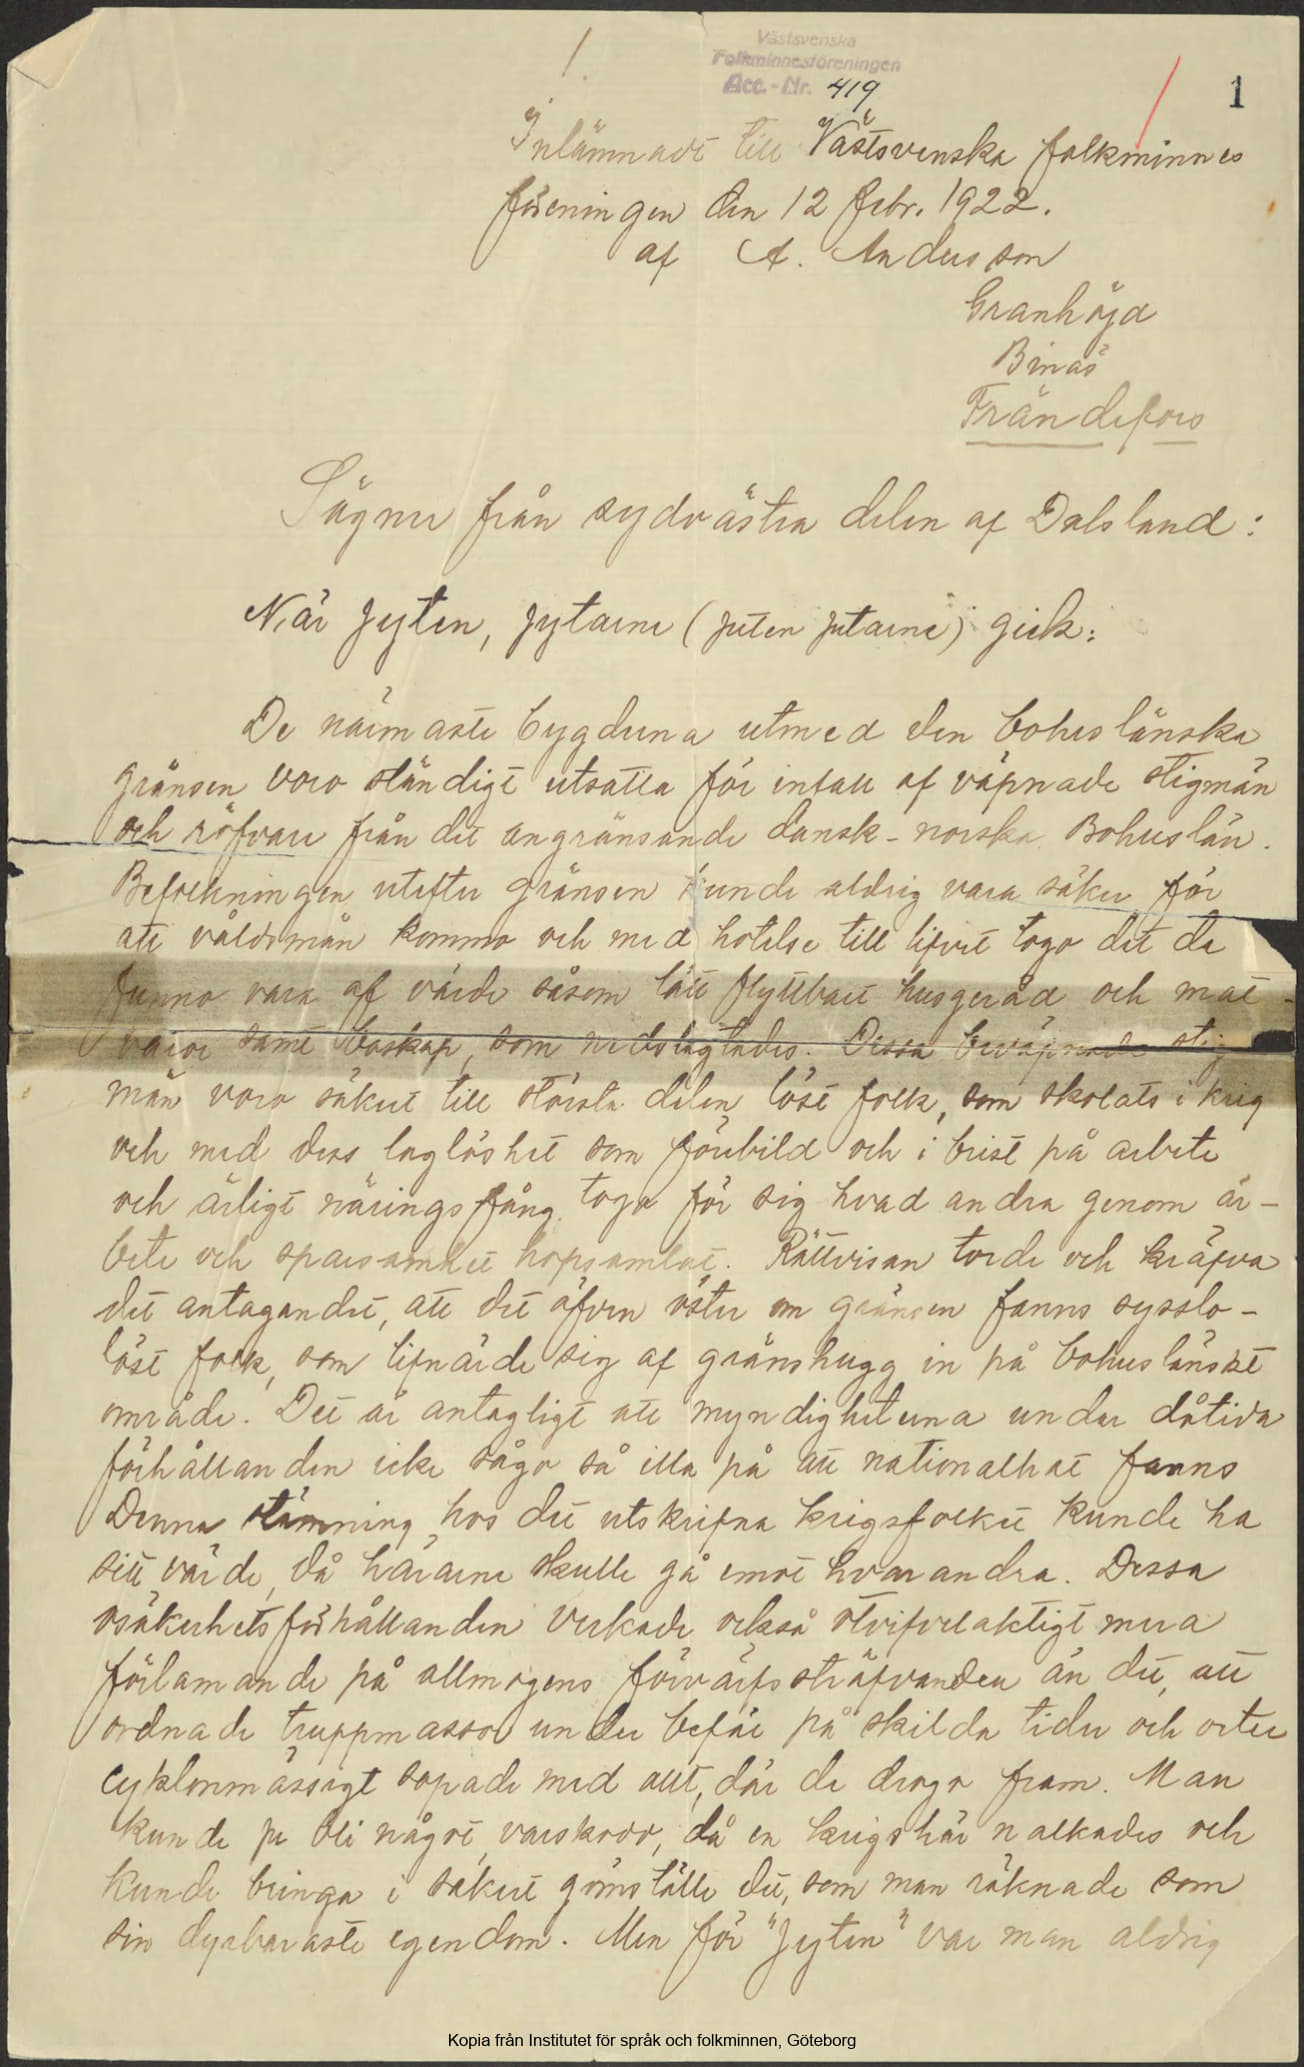 1.
Västsvenska
Folkminnesföreningen
Acc.-Nr. 419
1
Inlämnadt till Västsvenska folkminnes
föreningen den 12 febr. 1922.
af A. Andersson
Granhöjd
Binäs
Frändefors
Sägner från sydvästra delen af Dalsland:
När Jyten, Jytarne (juten jutarne) gick:
De närmaste bygderna utmed den bohuslänska
gränsen voro ständigt utsatta för infall af väpnade stigmän
och röfvare från det angränsande dansk-norska Bohuslän.
Befolkningen utefter gränsen kunde aldrig vara säker för
att våldsmän kommo och med hotelse till lifvet togo det de
funno vara af värde såsom lätt flyttbart husgeråd och mat-
varor samt boskap, som nedslagtades. Dessa beväpnade stig
män voro säkert till största delen löst folk, som skolats i krig
och med dess laglöshet som förebild och i brist på arbete
och ärligt näringsfång togo för sig hvad andra genom ar-
bete och sparsamhet hopsamlat. Rättvisan torde och kräfva
det antagandet, att det äfven öster om gränsen fanns sysslo-
löst folk, som lifnärde sig af gränshugg in på bohuslänskt
område. Det är antagligt att myndigheterna under dåtida
förhållanden icke sågo så illa på att nationalhat fanns
Denna stämning hos det utskrifna krigsfolket kunde ha
sitt värde, då härarne skulle gå emot hvarandra. Dessa
osäkerhetsförhållanden verkade också otvifvelaktigt mera
förlamande på allmogens förvärfssträfvanden än det, att
ordnade truppmassor under befäl på skilda tider och orter
cyklonmässigt sopade med allt, där de drogo fram. Man
kunde ju bli något varskodd, då en krigshär nalkades och
kunde bringa i säkert gömställe det, som man räknade som
sin dyrbaraste egendom. Men för "Jyten" var man aldrig
Kopia från Institutet för språk och folkminnen, Göteborg